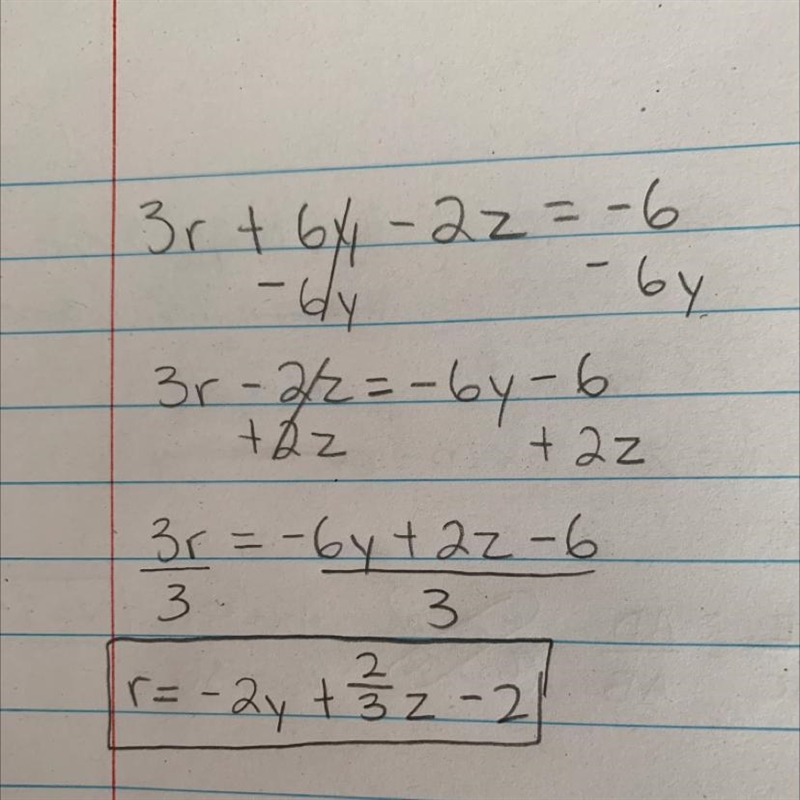 3r + 6y - 2z = -6
-6y - 6y
3r - 2z = -6y - 6
+2z + 2z
3r = -6y + 2z - 6
3 3
r = -2y + 2/3 z - 2